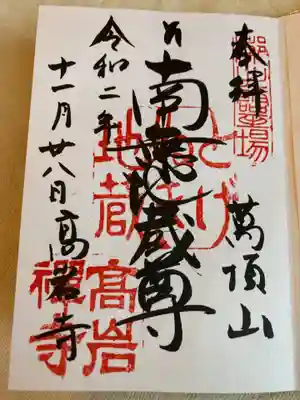 奉拝
萬頂山
南無地蔵尊
令和二年
十一月廿八日 高岩寺
とげぬき地蔵
高岩禅寺